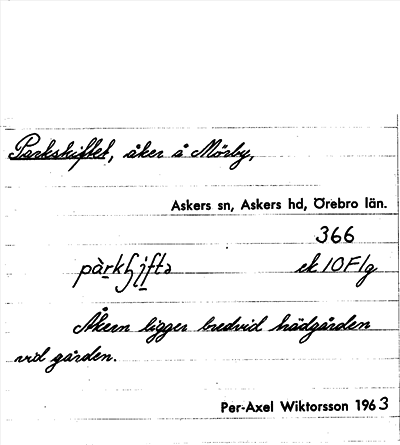 Parkskiftet, åker å Mörby,
Askers sn, Askers hd, Örebro län.
366
ek 10F1g
Åkern ligger bredvid trädgården
vid gården.
Per-Axel Wiktorsson 1963